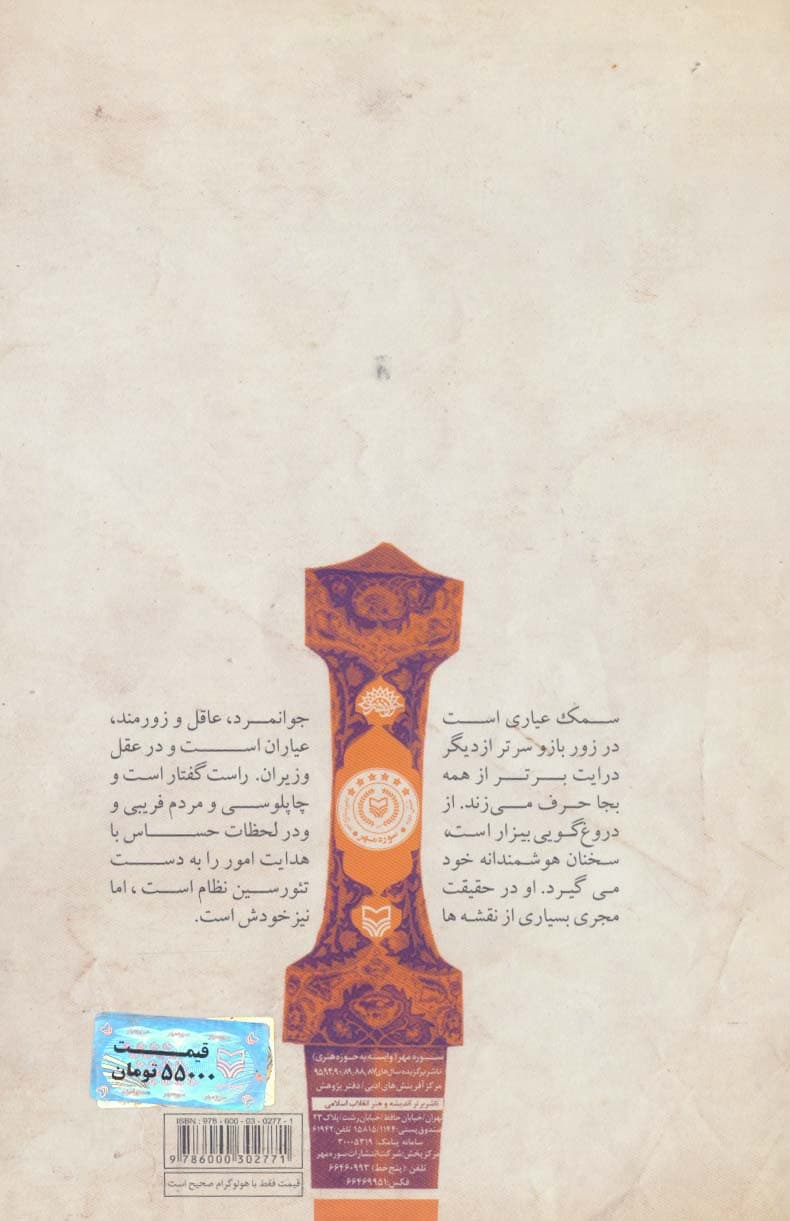 سمک عیاری است جوانمرد، عاقل و زورمند،
در زور بازو سرتر از دیگر عیاران است و در عقل
درایت برتر از همه وزیران. راست گفتار است و
بجا حرف می‌زند. از چاپلوسی و مردم فریبی و
دروغ‌گویی بیزار است، ودر لحظات حساس با
سخنان هوشمندانه خود هدایت امور را به دست
می گیرد. او در حقیقت تئورسین نظام است، اما
مجری بسیاری از نقشه ها نیز خودش است.
سوره مهر
سوره مهر (وابسته به حوزه هنری)
ناشر برگزیده سال‌های ۸۷، ۸۸، ۸۹، ۹۰، ۹۴، ۹۵
مرکز آفرینش‌های ادبی / دفتر پژوهش
ناشر برتر اندیشه و هنر انقلاب اسلامی
تهران / خیابان حافظ / خیابان رشت / پلاک ۲۳
صندوق پستی: ۱۱۴۴ / ۱۵۸۱۵ تلفن: ۶۱۹۴۲
سامانه پیامک: ۳۰۰۰۵۳۱۹
مرکز پخش: شرکت انتشارات سوره مهر
تلفن: (پنج خط) ۶۶۴۶۰۹۹۳
فکس: ۶۶۴۶۹۹۵۱
قیمت
۵۵۰۰۰ تومان
ISBN: 978-600-03-0277-1
9 786000 302771
قیمت فقط با هولوگرام صحیح است